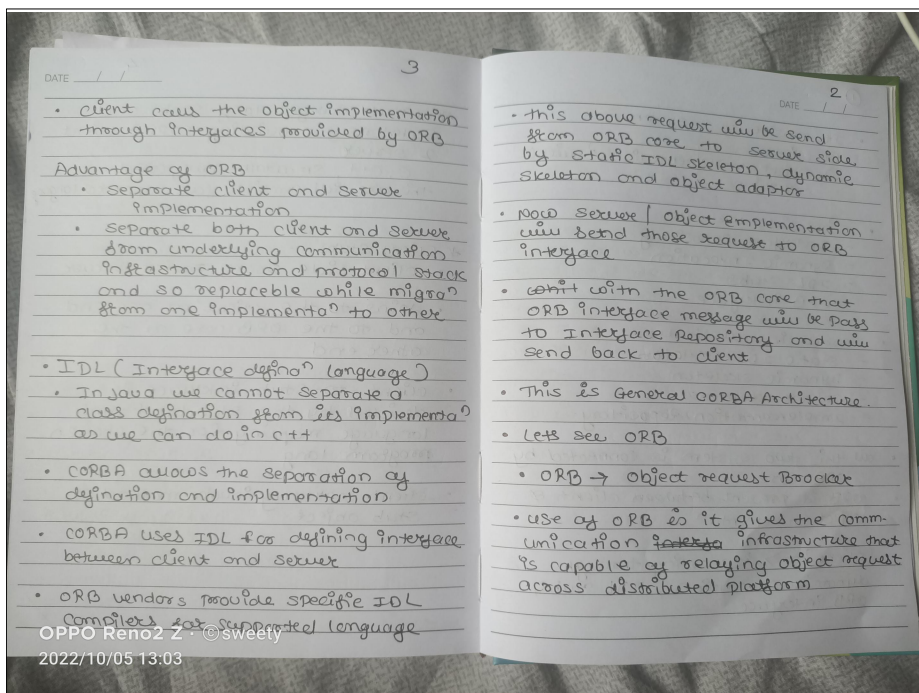 3
DATE / /
• client calls the object implementation
through interfaces provided by ORB
Advantage of ORB
• Separate client and server
implementation
• Separate both client and server
from underlying communication
infrastructure and protocol stack
and so replaceble while migraⁿ
from one implementaⁿ to other
• IDL (Interface definaⁿ language)
• In java we cannot separate a
class defination from its implementaⁿ
as we can do in c++
• CORBA allows the separation of
defination and implementation
• CORBA uses IDL for defining interface
between client and server
• ORB vendors provide specific IDL
Compilers for supported language
OPPO Reno2 Z · ©sweety
2022/10/05 13:03
2
DATE / /
• this above request will be send
from ORB core to server side
by static IDL skeleton, dynamic
skeleton and object adaptor
• Now server / object emplementation
will send those request to ORB
interface
• with the ORB core that
ORB interface message will be pass
to Interface Repository and will
send back to client
• This is General CORBA Architecture.
• Lets see ORB
• ORB → Object request Broocker
• use of ORB is it gives the comm-
unication infrastructure that
is capable of relaying object request
across distributed platform